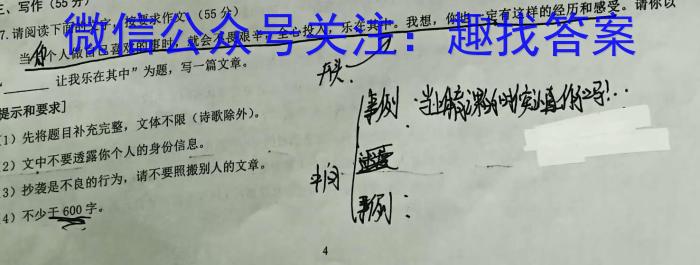 三、写作(55分)
7.请阅读下面的文字,按要求作文。(55分)
当一个人做自己喜欢的事时,就会不畏艰辛,全心投入,乐在其中。我想,你也一定有这样的经历和感受。请你以
微信公众号关注:趣找答案
“______让我乐在其中”为题,写一篇文章。
开头:
提示和要求]
1)先将题目补充完整,文体不限(诗歌除外)。
事例:
2)文中不要透露你个人的身份信息。
3)抄袭是不良的行为,请不要照搬别人的文章。
中间
4)不少于600字。
事例:
4